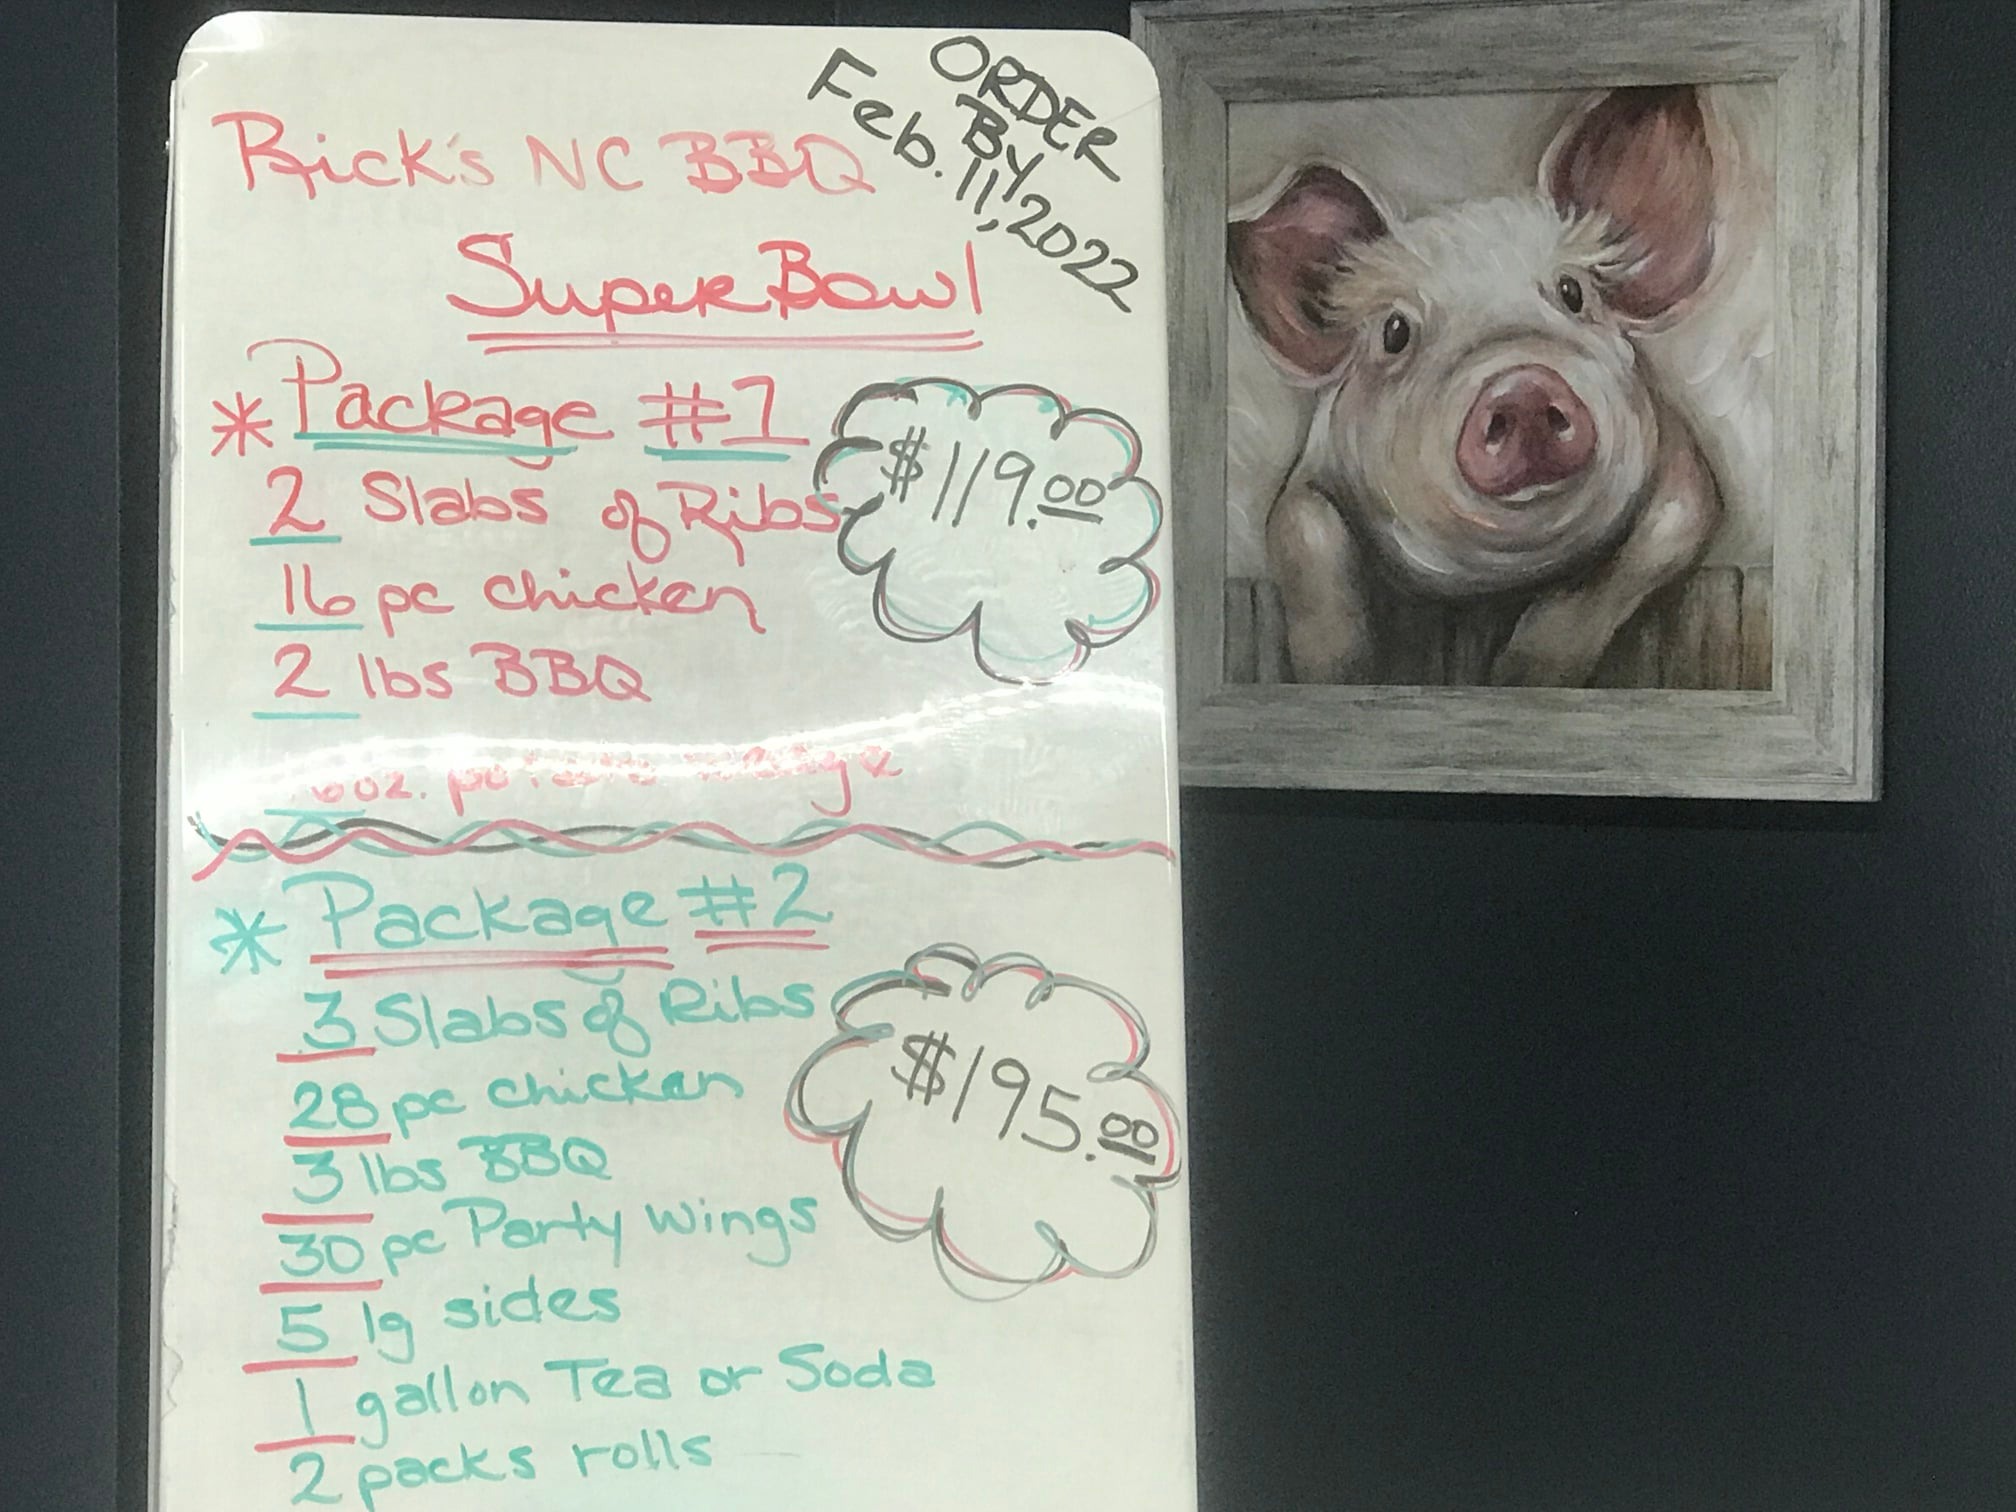 ORDER
BY
Feb. 11, 2022
Rick's NC BBQ
Super Bowl
* Package #1
$119.00
2 Slabs of Ribs
16 pc chicken
2 lbs BBQ
* Package #2
3 Slabs of Ribs
$195.00
28 pc chicken
3 lbs BBQ
30 pc Party Wings
5 lg sides
1 gallon Tea or Soda
2 packs rolls